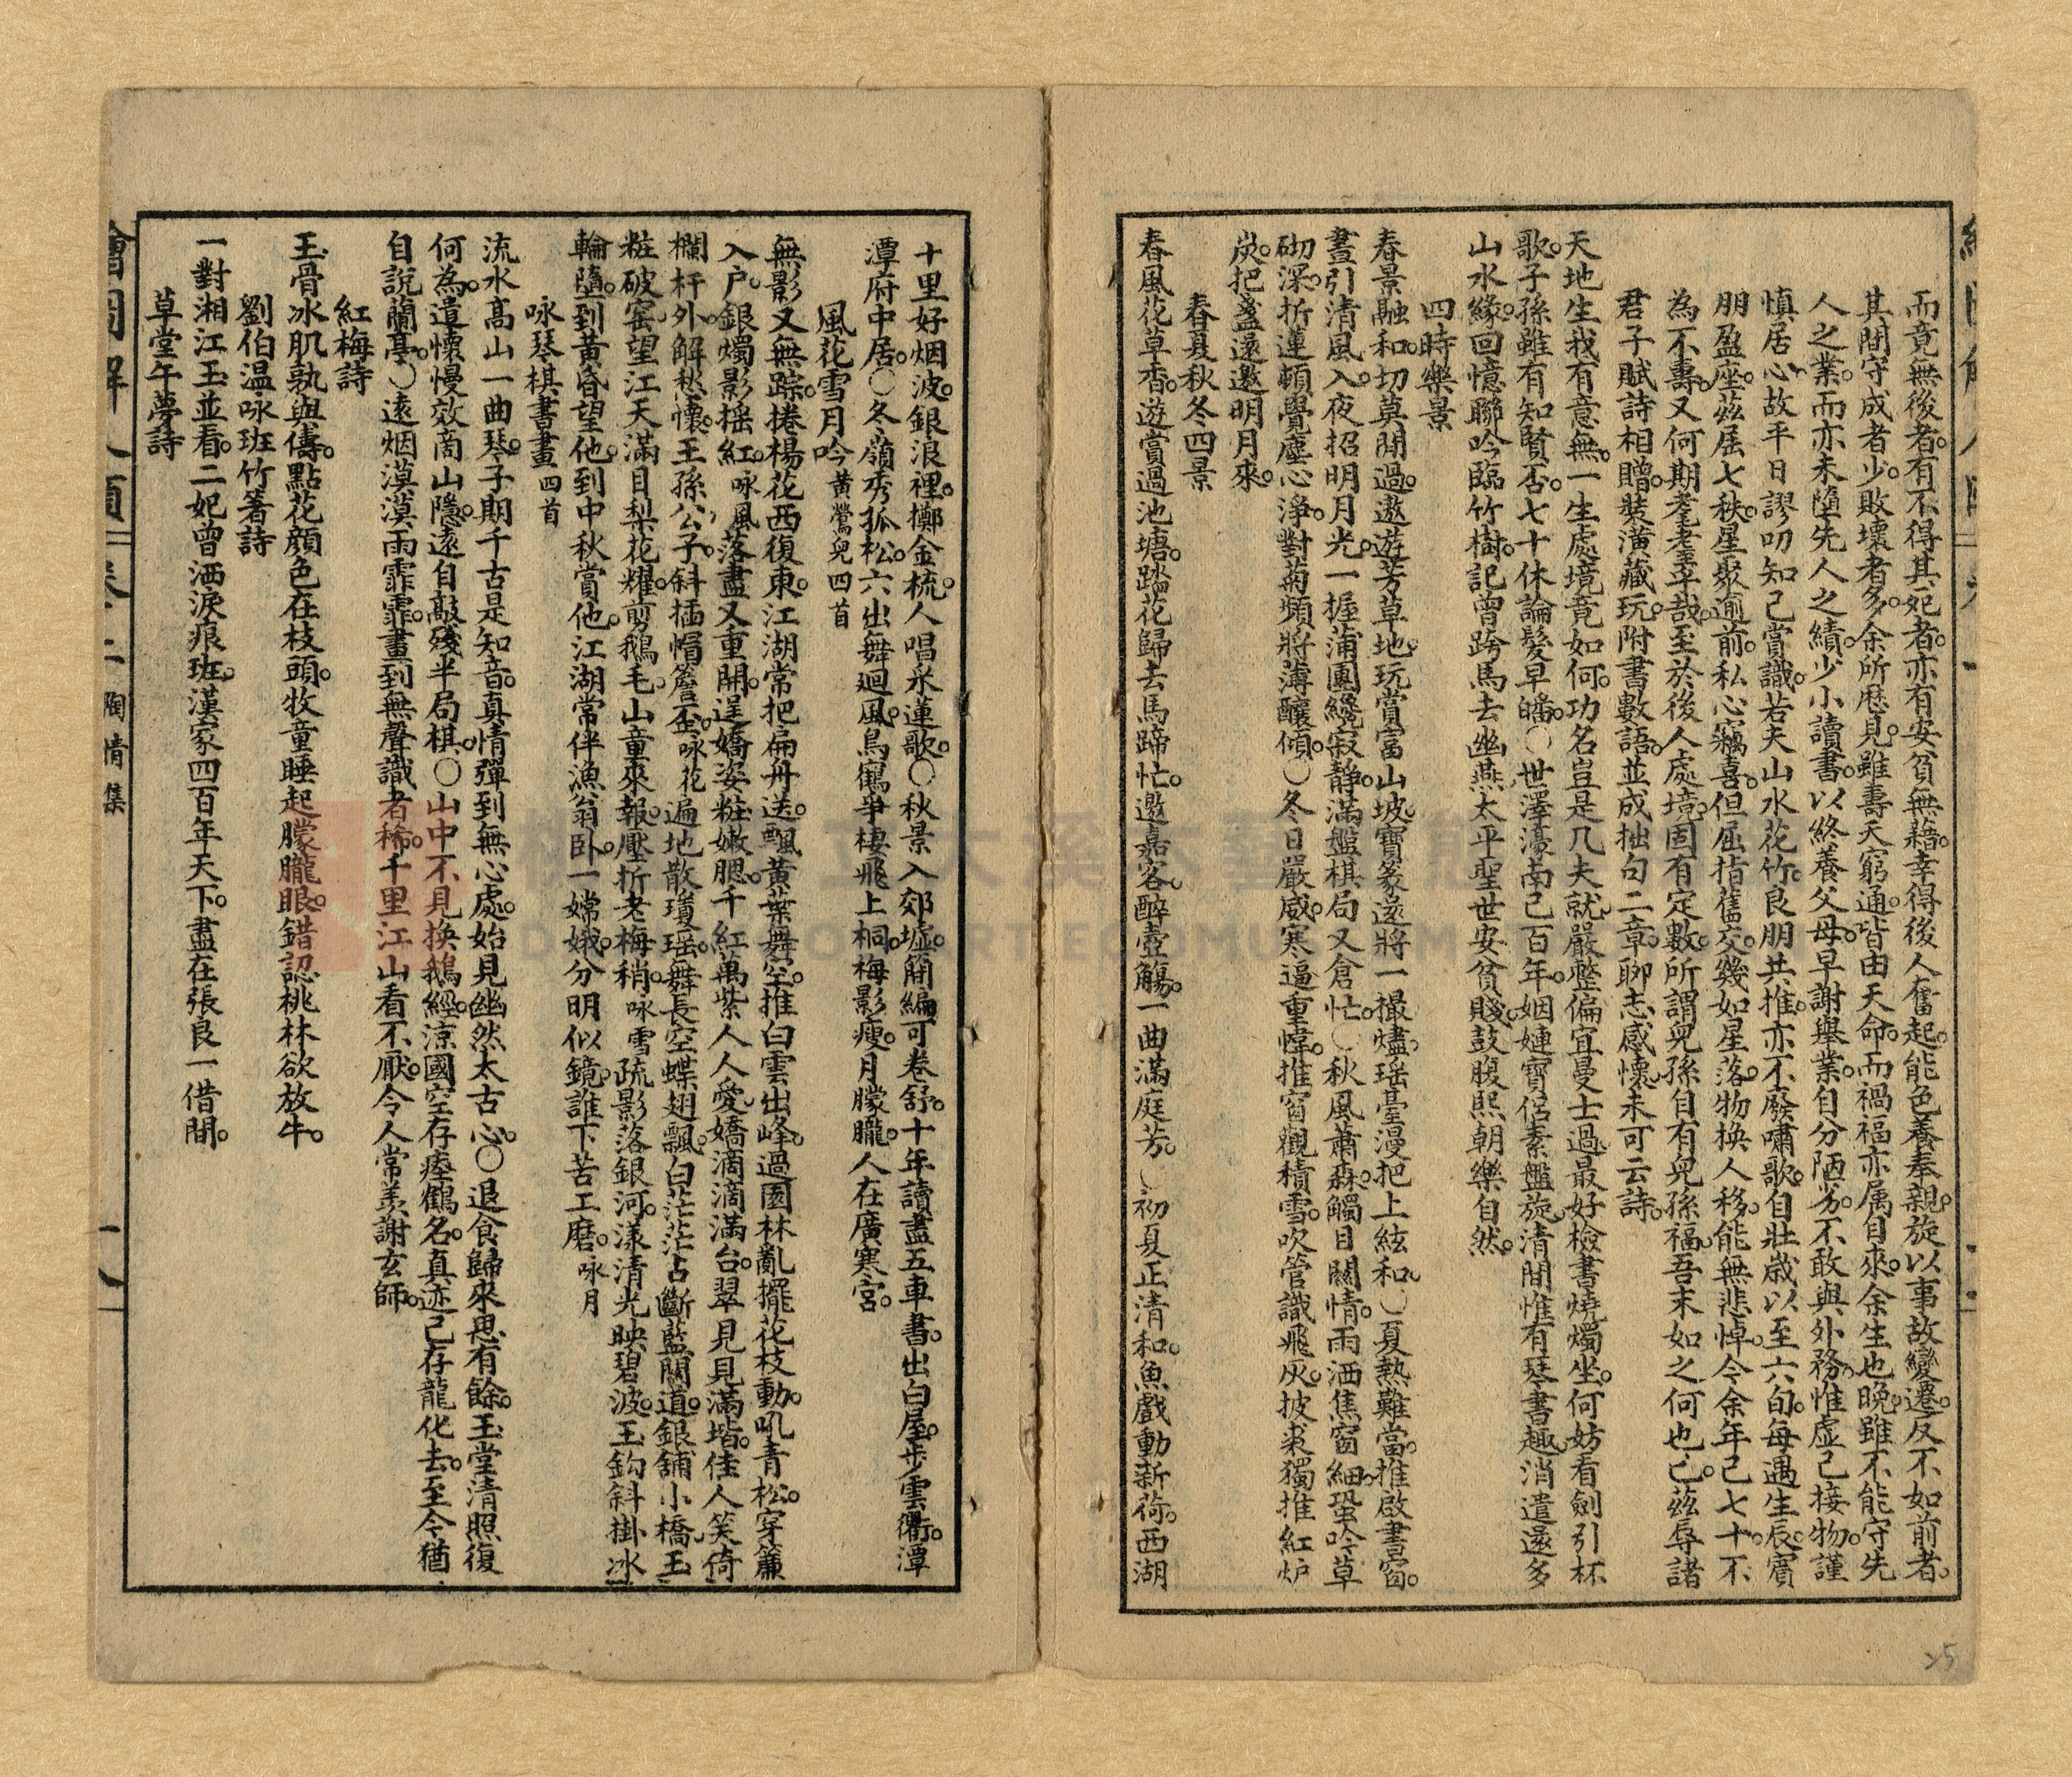 而竟無後者有不得其死者亦有安貧無藉幸得後人奮起能色養奉親旋以事故變遷反不如前者
其間守成者少敗壞者多余所歷見雖壽夭窮通皆由天命而禍福亦属自來余生也晚雖不能守先
人之業而亦未墮先人之績少小讀書以終養父母早謝舉業自分陋劣不敢與外務惟虛己接物謹
慎居心故平日謬叨知己賞識若夫山水花竹良朋共推亦不廢嘯歌自壯歲以至六旬每遇生辰賓
朋盈座茲屆七秩星聚逾前私心竊喜但屈指舊交幾如星落物換人移能無悲悼今余年已七十不
為不壽又何期耄耋平哉至於後人處境固有定數所謂兒孫自有兒孫福吾末如之何也已茲辱諸
君子賦詩相贈裝潢藏玩附書數語並成拙句二章聊志感懷未可云詩
天地生我有意無一生處境竟如何功名豈是凡夫就嚴整偏宜曼士過最好檢書燒燭坐何妨看劍引杯
歌子孫雖有知賢否七十休論髮早皤〇世澤濠南已百年姻婕寶侶素盤旋清閒惟有琴書趣消遣還多
山水緣回憶聯吟臨竹樹記曾跨馬去幽燕太平聖世安貧賤鼓腹熙朝樂自然
四時樂景
春景融和切莫閒過遨遊芳草地玩賞富山坡寶篆還將一撮爐瑤臺漫把上絃和〇夏熱難當推啟書窗
晝引清風入夜招明月光一握蒲團纔寂靜滿盤棋局又倉忙〇秋風蕭森觸目關情雨洒焦窗細蛩吟草
砌深折蓮頓覺塵心淨對菊頻將薄釀傾〇冬日嚴威寒逼重幃推窗觀積雪吹管識飛灰披裘獨推紅炉
炭把盞還邀明月來
春夏秋冬四景
春風花草香遊賞過池塘踏花歸去馬蹄忙邀嘉客醉壺觴一曲滿庭芳〇初夏正清和魚戲動新荷西湖
十里好烟波銀浪裡擲金梳人唱采蓮歌〇秋景入郊墟簡編可卷舒十年讀盡五車書出白屋步雲衢潭
潭府中居〇冬嶺秀孤松六出舞迴風烏鵲爭棲飛上桐梅影瘦月朦朧人在廣寒宮
風花雪月吟黃鶯兒四首
無影又無踪捲楊花西復東江湖常把扁舟送飄黃葉舞空推白雲出峰過園林亂擺花枝動吼青松穿簾
入户銀燭影搖紅咏風落盡又重開逞嬌姿粧嫩腮千紅萬紫人人愛嬌滴滴滿台翠見見滿堦佳人笑倚
欄杆外解愁懷王孫公子斜插帽簷歪咏花遍地散瓊瑤舞長空蝶翅飄白茫茫占斷藍關道銀鋪小橋玉
粧破窑望江天滿目梨花耀剪鵝毛山童來報壓折老梅稍咏雪疏影落銀河漾清光映碧波玉鈎斜掛冰
輪墮到黃昏望他到中秋賞他江湖常伴漁翁卧一嫦娥分明似鏡誰下苦工磨咏月
咏琴棋書畫四首
流水高山一曲琴子期千古是知音真情彈到無心處始見幽然太古心〇退食歸來思有餘玉堂清照復
何為遣懷慢效商山隱遠自敲殘半局棋〇山中不見換鵝經涼國空存瘞鶴名真迹已存龍化去至今猶
自說蘭亭〇遠烟漠漠雨霏霏畫到無聲識者稀千里江山看不厭今人常羨謝玄師
紅梅詩
玉骨冰肌孰與儔點花顏色在枝頭牧童睡起朦朧眼錯認桃林欲放牛
劉伯温咏班竹箸詩
一對湘江玉並看二妃曾洒淚痕班漢家四百年天下盡在張良一借間
草堂午夢詩
繪圖解人頤 卷十二 陶情集
十八
25